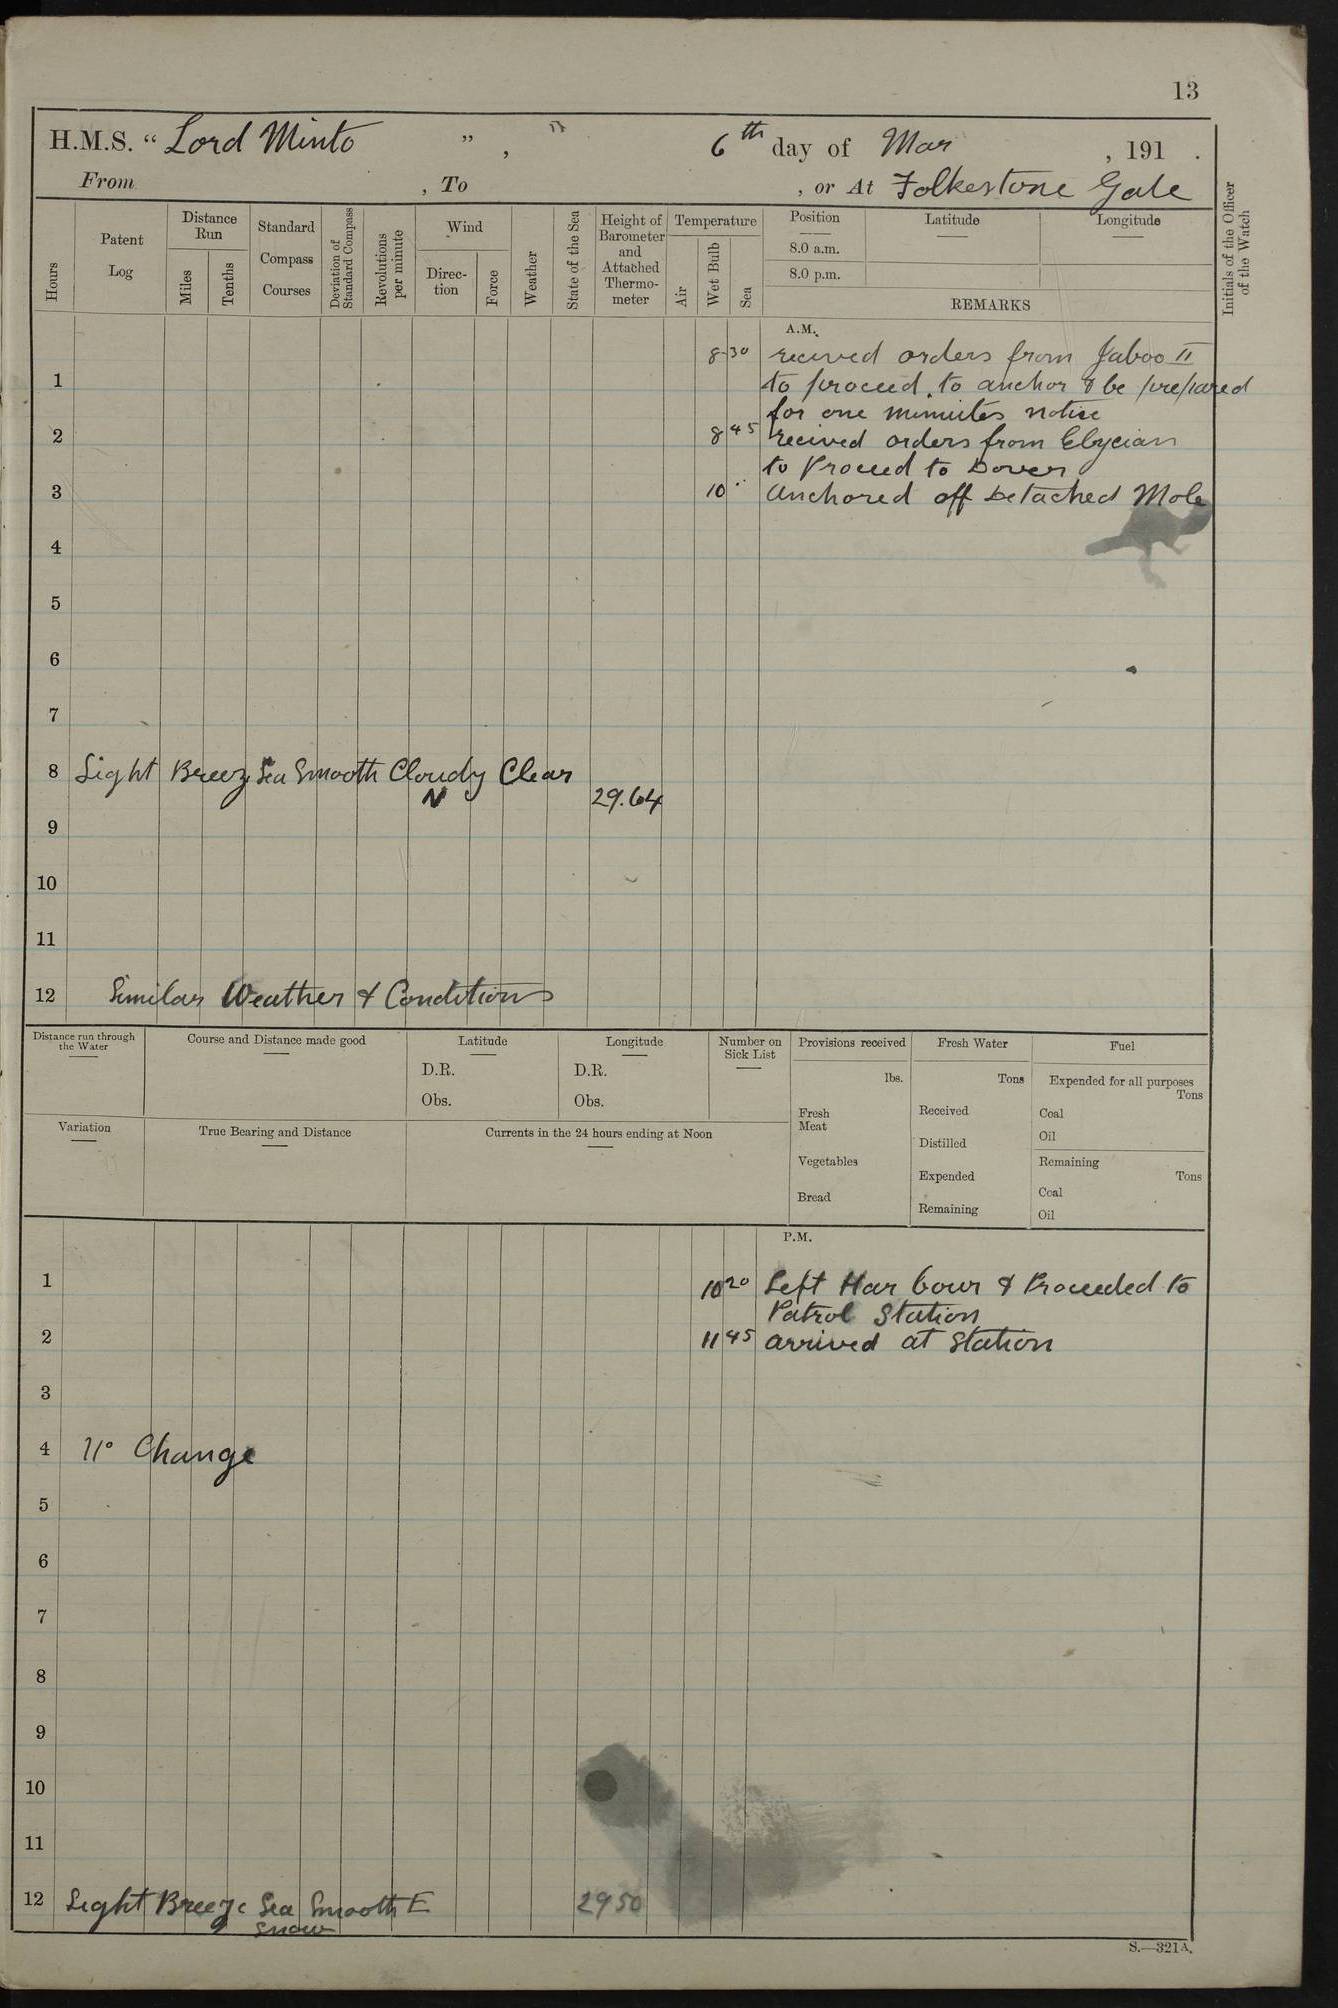 13
H.M.S. “ Lord Minto ” , 6th day of Mar , 191 .
From , To , or At Folkestone Gate
Hours
Patent Log
Distance Run
Miles
Tenths
Standard Compass Courses
Deviation of Standard Compass
Revolutions per minute
Wind
Direction
Force
Weather
State of the Sea
Height of Barometer and Attached Thermometer
Temperature
Air
Wet Bulb
Sea
Position
8.0 a.m.
8.0 p.m.
Latitude
Longitude
REMARKS
Initials of the Officer of the Watch
A.M.
8 30 recived orders from Jaboo II
1 to proceed to anchor & be prepared
for one minuites notice
2 8 45 recived orders from Elycian
to Proceed to Dover
3 10 .. anchored off Detached Mole
4
5
6
7
8 Light Breez Sea Smooth Cloudy Clear
N 29.64
9
10
11
12 Similar Weather & Conditions
Distance run through the Water
Course and Distance made good
Latitude
D.R.
Obs.
Longitude
D.R.
Obs.
Number on Sick List
Provisions received
lbs.
Fresh Meat
Vegetables
Bread
Fresh Water
Tons
Received
Distilled
Expended
Remaining
Fuel
Expended for all purposes
Tons
Coal
Oil
Remaining
Tons
Coal
Oil
Variation
True Bearing and Distance
Currents in the 24 hours ending at Noon
P.M.
1 10 20 Left Harbour & Proceeded to
Patrol Station
2 11 45 arrived at Station
3
4 No Change
5
6
7
8
9
10
11
12 Light Breeze Sea Smooth E 29 50
Snow
S.—321A.